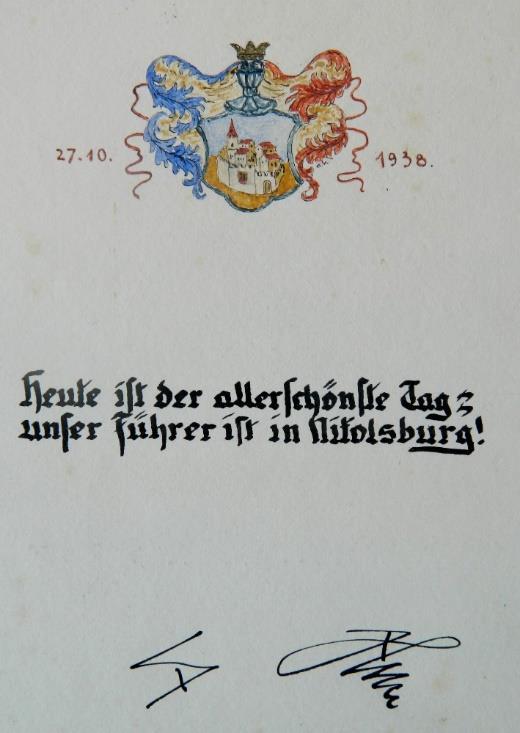 27.10. 1938.
Heute ist der allerschönste Tag :
unser Führer ist in Nikolsburg!